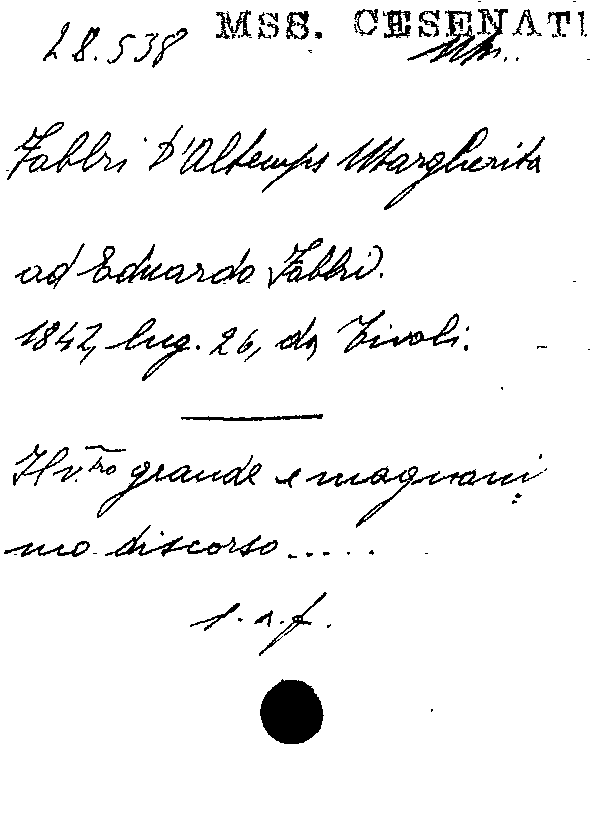 28.538 MSS. CESENATI
Fabbri D'Altemps Margherita
ad Eduardo Fabbri.
1842, lug. 26, da Tivoli.
Il v.tro grande e magnani
mo discorso.....
1. a. f.